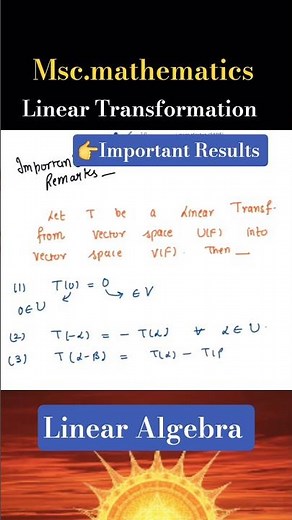 Msc.mathematics
Linear Transformation
👉Important Results
Importan
Remarks —
Let T be a Linear Transf.
from vector space U(F) into
vector space V(F). Then —
(1) T(0) = 0
0∈U ∈V
(2) T(-α) = - T(α) ∀ α∈U.
(3) T(α-β) = T(α) - T(β
Linear Algebra